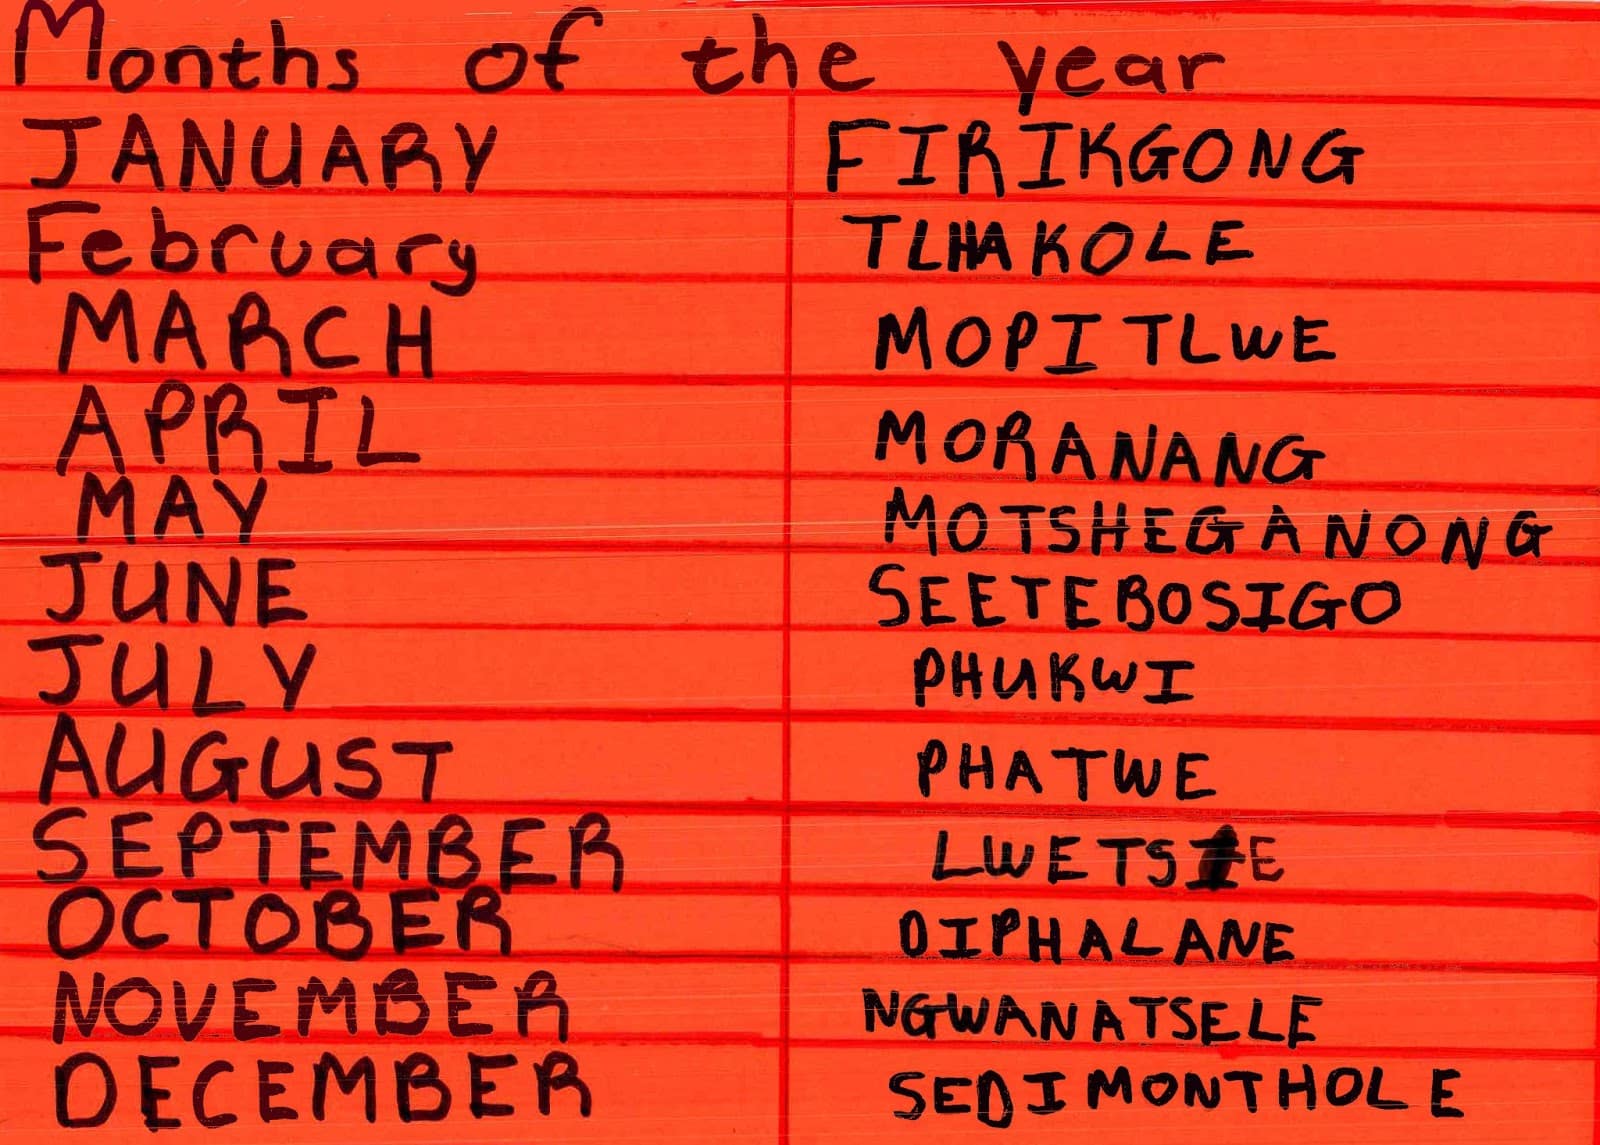 Months of the year
JANUARY FIRIKGONG
February TLHAKOLE
MARCH MOPITLWE
APRIL MORANANG
MAY MOTSHEGANONG
JUNE SEETEBOSIGO
JULY PHUKWI
AUGUST PHATWE
SEPTEMBER LWETSE
OCTOBER DIPHALANE
NOVEMBER NGWANATSELE
DECEMBER SEDIMONTHOLE